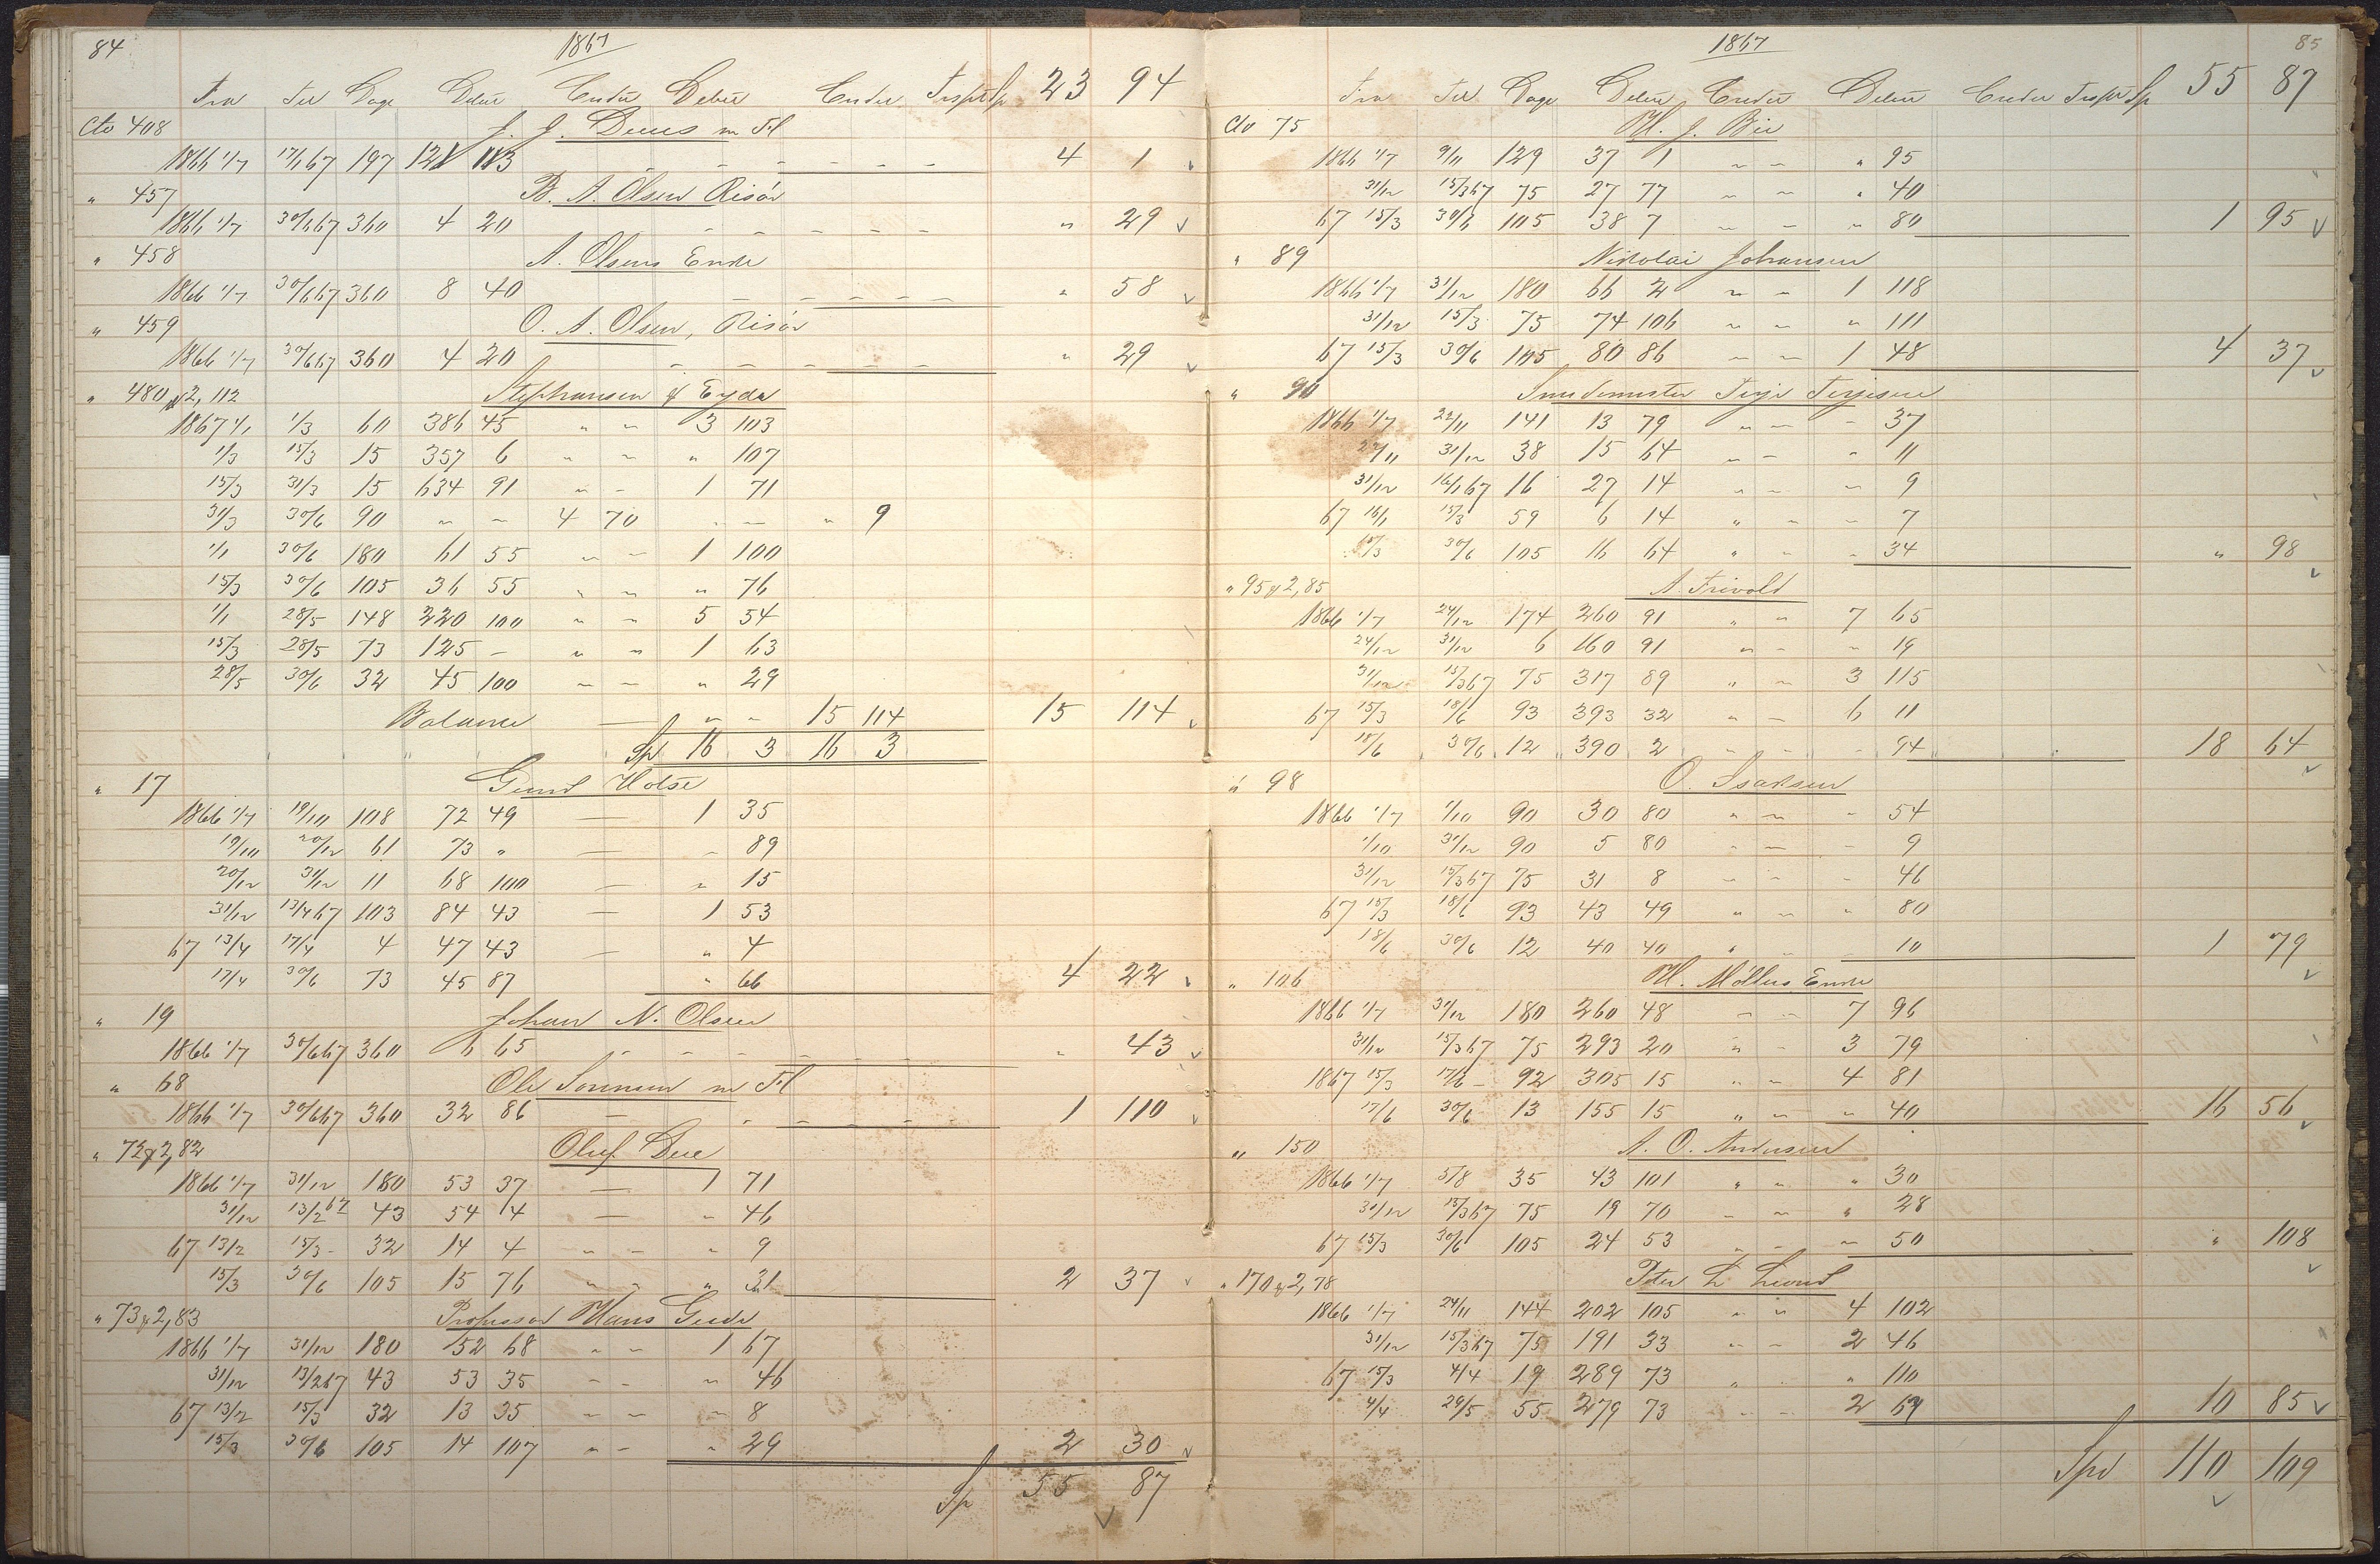 84
1867
Fra Til Dage Debit Credit Debit Credit Trsprt Sp 23 94
Cto 408 J. J. Dues m Fl
1866 1/7 17/1 67 197 121 113 - - - - - - 4 1
" 457 B. A. Olsen Risör
1866 1/7 30/6 67 360 4 20 - - - - - " 29
" 458 A. Olsens Enke
1866 1/7 30/6 67 360 8 40 - - - - - " 58
" 459 O. A. Olsen, Risör
1866 1/7 30/6 67 360 4 20 - - - - - " 29
" 480 & 2, 112 Stephansen & Eyde
1867 1/1 1/3 60 386 45 " " 3 103
1/3 15/3 15 357 6 " " " 107
15/3 31/3 15 634 91 " - 1 71
31/3 30/6 90 - - 4 70 - - " 9
1/1 30/6 180 61 55 - - 1 100
15/3 30/6 105 36 55 " " " 76
1/1 28/5 148 220 100 " " 5 54
15/3 28/5 73 125 - " " 1 63
28/5 30/6 32 45 100 - - " 29
Balance - " - 15 114 15 114
Sp 16 3 16 3
" 17 Gund Holse
1866 1/7 19/10 108 72 49 - 1 35
19/10 20/12 61 73 " - - 89
20/12 31/12 11 68 100 - " 15
31/12 13/4 67 103 84 43 - 1 53
67 13/4 17/4 4 47 43 - " 4
17/4 30/6 73 45 87 " 66 4 22
" 19 Johan N. Olsen
1866 1/7 30/6 67 360 6 65 - - - - - - " 43
" 68 Ole Sörensen m Fl
1866 1/7 30/6 67 360 32 86 - - - - - 1 110
" 72 & 2, 82 Oluf Due
1866 1/7 31/12 180 53 37 - 1 71
31/12 13/2 67 43 54 4 - - 46
67 13/2 15/3 - 32 14 4 - - " 9
15/3 30/6 105 15 76 " " " 31 2 37
" 73 & 2, 83 Professor Hans Gude
1866 1/7 31/12 180 52 68 - - 1 67
31/12 13/2 67 43 53 35 - - " 46
67 13/2 15/3 32 13 35 - - - 8
15/3 30/6 105 14 107 " - " 29 2 30
Sp 55 87
1867
85
Fra Til Dage Debit Credit Debit Credit Trsprt Sp 55 87
Cto 75 H. J. Bie
1866 1/7 9/11 129 37 1 - - " 95
31/12 15/3 67 75 27 77 - - " 40
67 15/3 30/6 105 38 7 - - " 80 1 95
" 89 Nikolai Johansen
1866 1/7 31/12 180 66 2 - - 1 118
31/12 15/3 75 74 106 - - " 111
67 15/3 30/6 105 80 86 - - 1 48 4 37
" 90 Smedemester Terje Terjesen
1866 1/7 22/11 141 13 79 " - - 37
22/11 31/12 38 15 64 - - " 11
31/12 16/1 67 16 27 14 " - - 9
67 16/1 15/3 59 6 14 " - - 7
15/3 30/6 105 16 64 " - - 34 " 98
" 95 & 2, 85 A. Trivold
1866 1/7 24/12 174 260 91 " - 7 65
24/12 31/12 6 160 91 " - - 19
31/12 15/3 67 75 317 89 " - 3 115
67 15/3 18/6 93 393 32 " - 6 11
18/6 30/6 12 390 2 - - - 94 18 64
" 98 O. Isaksen
1866 1/7 1/10 90 30 80 " - - 54
1/10 31/12 90 5 80 - - - 9
31/12 15/3 67 75 31 8 - - - 46
67 15/3 18/6 93 43 49 " - " 80
18/6 30/6 12 40 40 " - - 10 1 79
" 106 H. Möllers Enke
1866 1/7 31/12 180 260 48 - - 7 96
31/12 15/3 67 75 293 20 " - 3 79
1867 15/3 17/6 - 92 305 15 " - 4 81
17/6 30/6 13 155 15 " - " 40 16 56
" 150 A. O. Andersen
1866 1/7 5/8 35 43 101 " " " 30
31/12 15/3 67 75 19 70 - - " 28
67 15/3 30/6 105 24 53 " - - 50 " 108
" 170 & 2, 78 Peter L. Lund
1866 1/7 24/11 144 202 105 " " 4 102
31/12 15/3 67 75 191 33 - - 2 46
67 15/3 4/4 19 289 73 " - " 110
4/4 29/5 55 279 73 - - 2 67 10 85
Spd 110 109